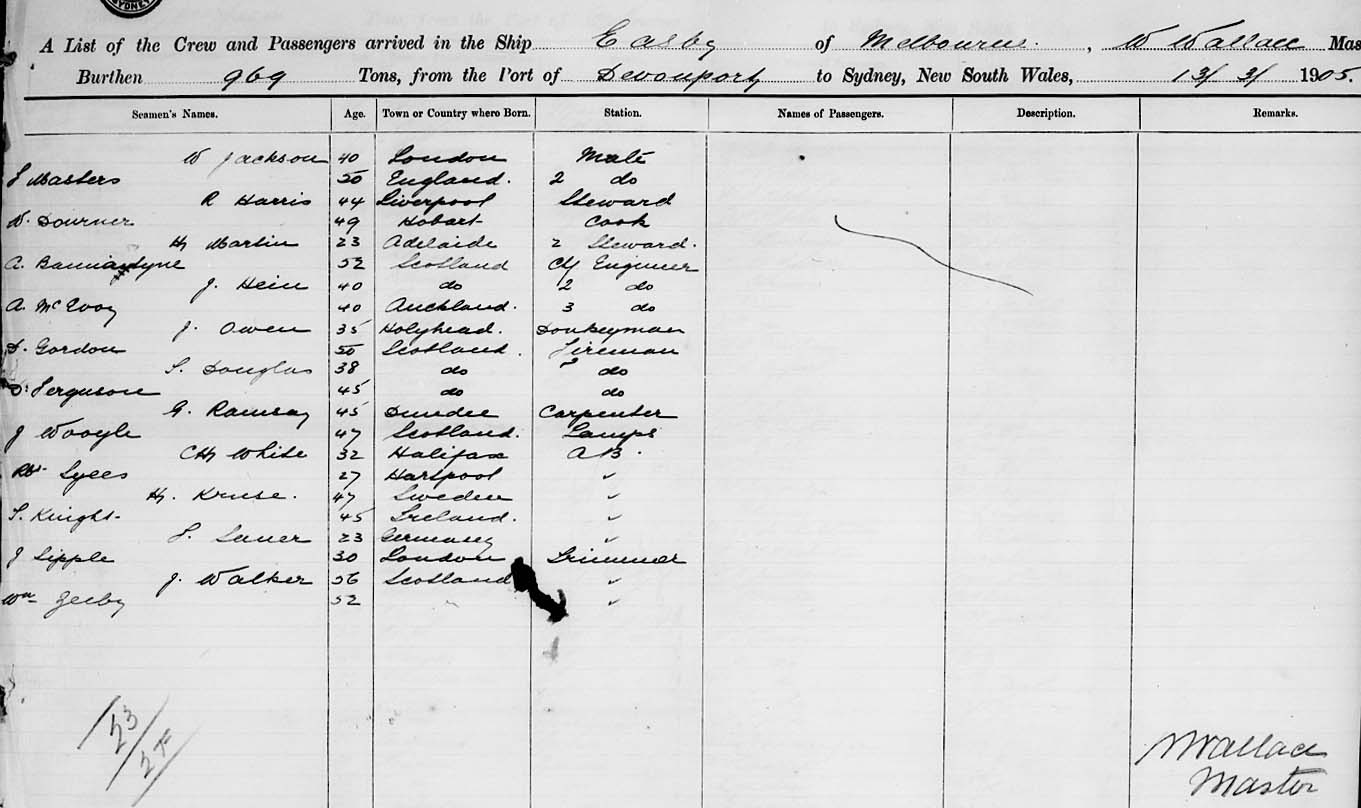 SYDNEY
A List of the Crew and Passengers arrived in the Ship Easby of Melbourne , W Wallace Mas
Burthen 969 Tons, from the Port of Devonport to Sydney, New South Wales, 13/3/ 1905.
Seamen's Names. Age. Town or Country where Born. Station. Names of Passengers. Description. Remarks.
W Jackson 40 London Mate
J Masters 50 England. 2 do
R Harris 44 Liverpool Steward
W. 49 Hobart Cook
Hy Martin 23 Adelaide 2 Steward.
A. Bannatyne 52 Scotland Chf Engineer
J. Hein 40 do 2 do
A. McEvoy 40 Auckland. 3 do
J. Owen 35 Holyhead. Donkeyman
D. Gordon 50 Scotland. Fireman
S. Douglas 38 do do
D. Ferguson 45 do do
G. Ramsay 45 Dundee Carpenter
J 47 Scotland. Lamps
Chs White 32 Halifax A B.
Rbt Lyees 27 Hartpool ✓
Hy. Kruse. 47 Sweden ✓
T. Knight 45 Ireland. ✓
S. Lauer 23 Germany ✓
J Sipple 30 London Trimmer
J. Walker 56 Scotland ✓
Wm Zeeby 52 " ✓
23/
W Wallace
Master